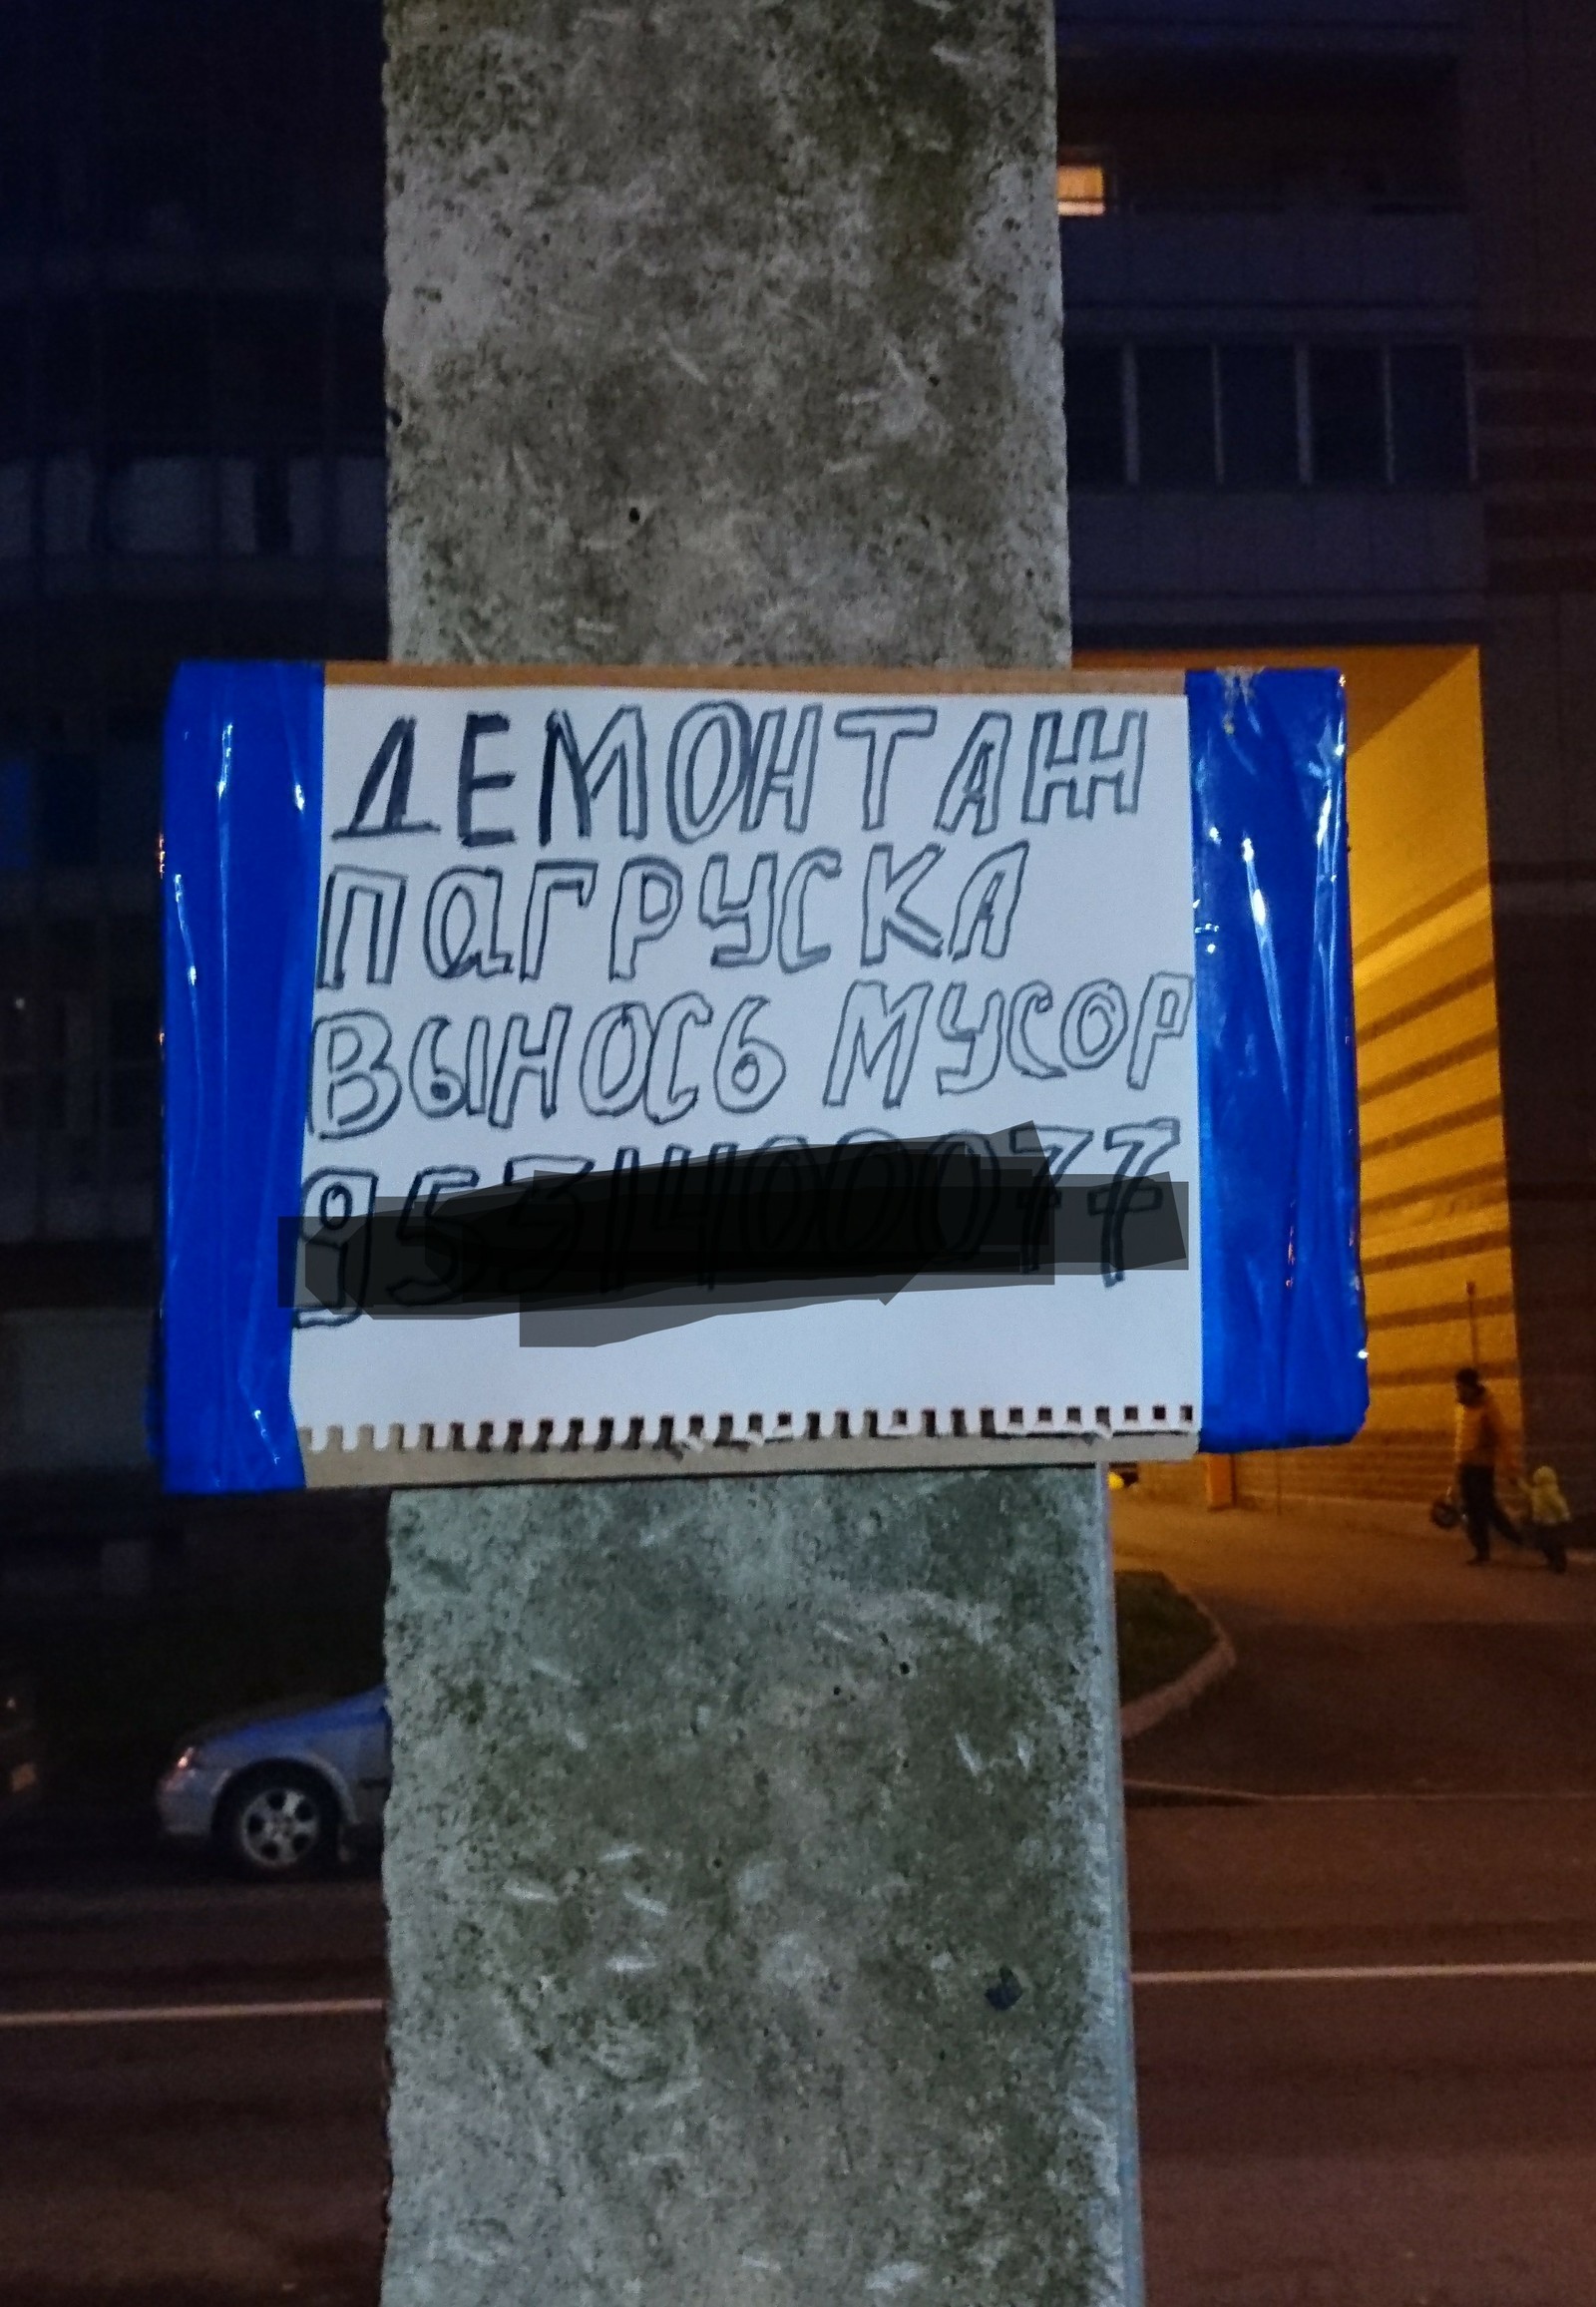 ДЕМОНТАЖ
ПАГРУСКА
ВЫНОСЬ МУСОР